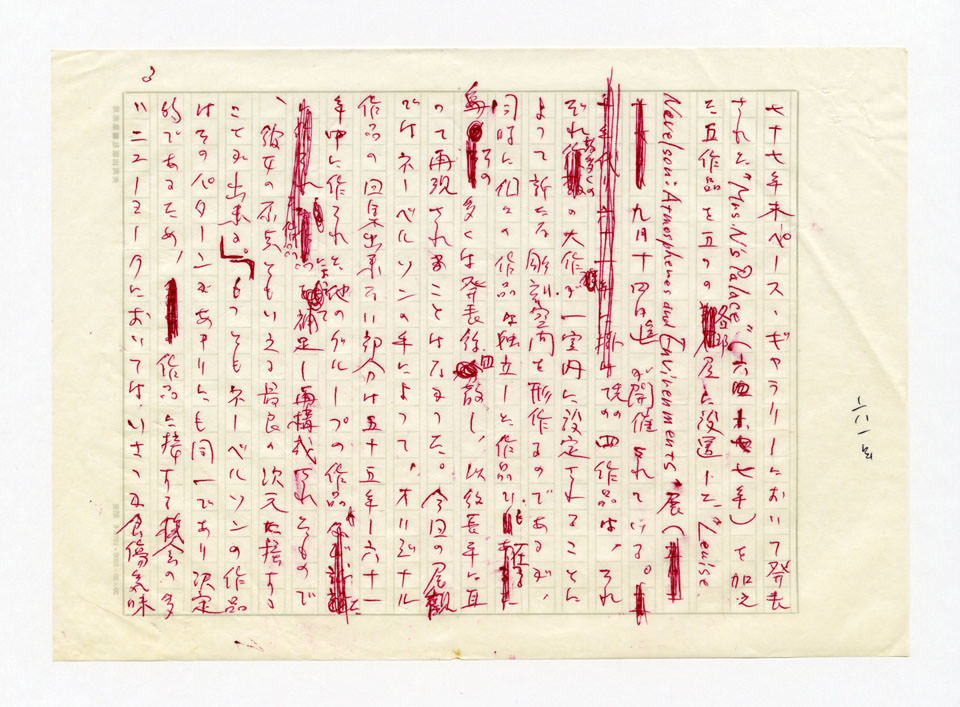 3
七十七年末ペース・ギャラリーにおいて発表
された"Mrs. N's Palace"(六四ー七七年)を加え
た五作品を五つの部屋に設置した"Louise
Nevelson: Atmospheres and Environments"展(
九月十四日迄)が開催されている。
掛け 四作品は、それ
ぞれ 数多くの大作が一室内に設定されることに
よって新たな彫刻空間を形作るのであるが、
同時に個々の作品は独立した作品でも
ある 為 多くは発表後四散し、以後長年に亘
って再現されることはなかった。今回の展観
ではネーベルソンの手によって、オリジナル
作品の回集出来ない部分は五十五年ー六十一
年中に作られた他のグループの作品
によって補足し再構成されたもので
、彼女の原点ともいえる最良の次元に接する
ことが出来る。もっともネーベルソンの作品
はそのパターンがあまりにも同一であり決定
的であるため、作品に接する機会の多
いニューヨークにおいては、いささか食傷気味